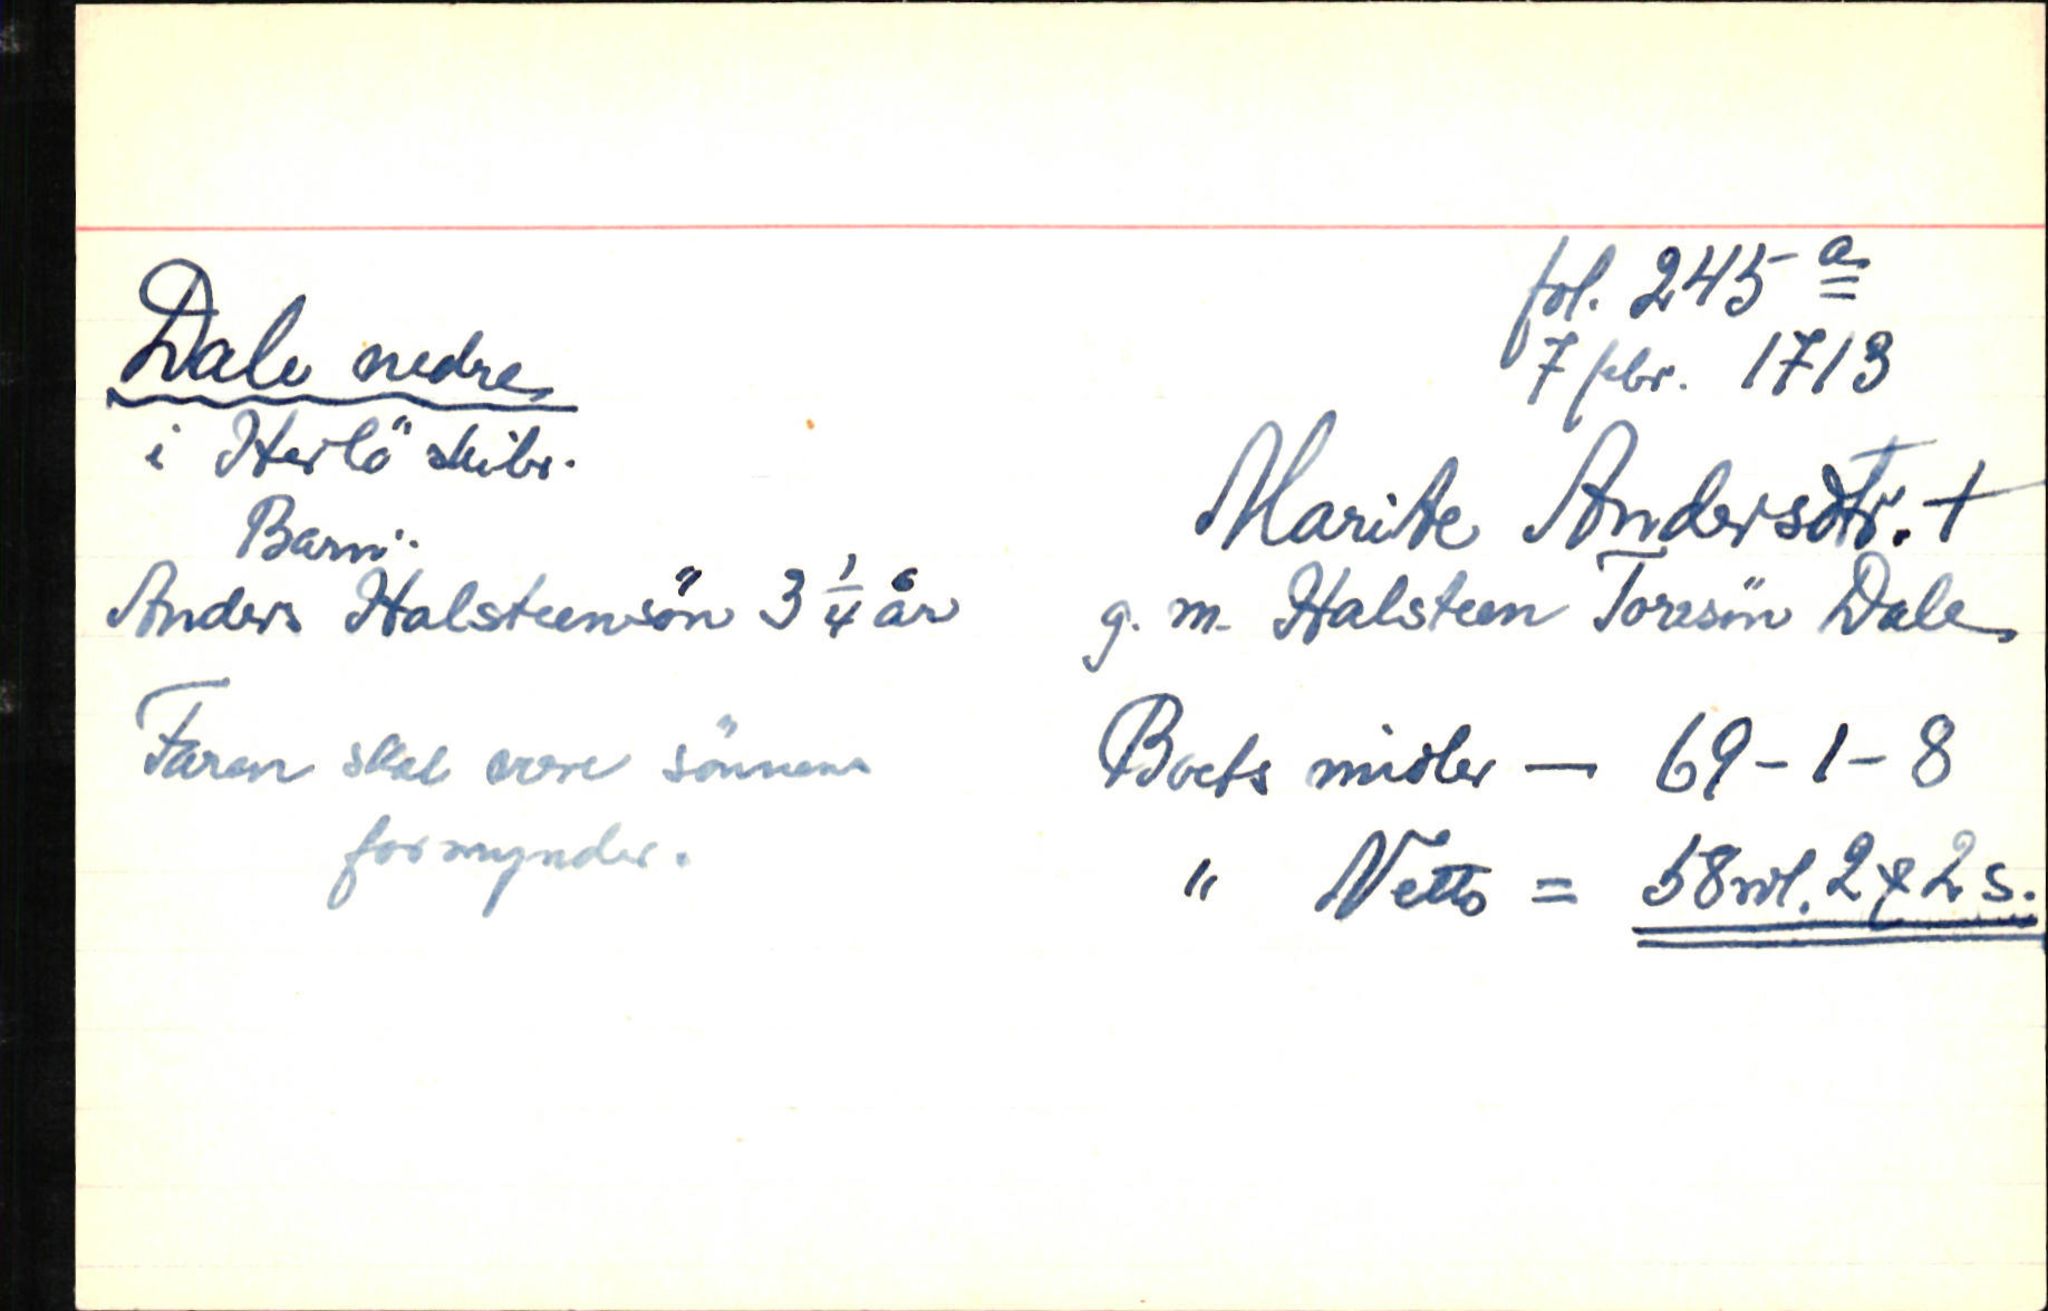 fol. 245 a
7 febr. 1713
Dale nedre
i Herlö skibr.
Marite Andersdtr. +
Barn:
Anders Halsteensön 3 1/4 år
g. m. Halsteen Toresön Dale
Faren skal være sönnens
formynder.
Boets midler — 69 - 1 - 8
" Netto = 58 rdl. 2 ꝑ 2 s.